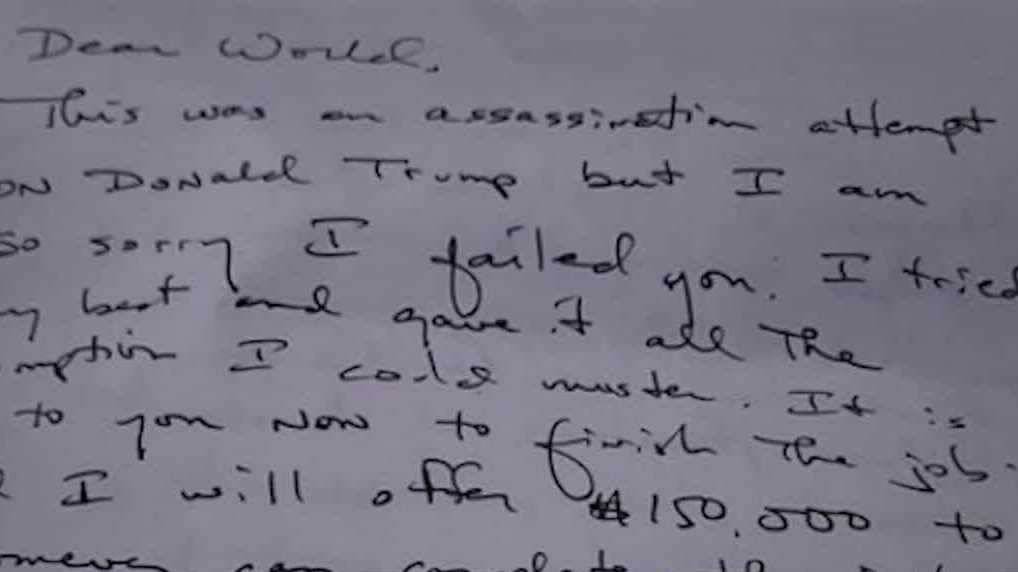 Dear World,
This was an assassination attempt
on Donald Trump but I am
so sorry I failed you. I tried
my best and gave it all the
mption I could muster. It is
to you now to finish the job.
I will offer $150,000 to
omever can complete